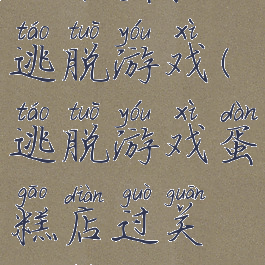 táo tuō yóu xì
逃脱游戏(
táo tuō yóu xì dàn
逃脱游戏蛋
gāo diàn guò guān
糕店过关